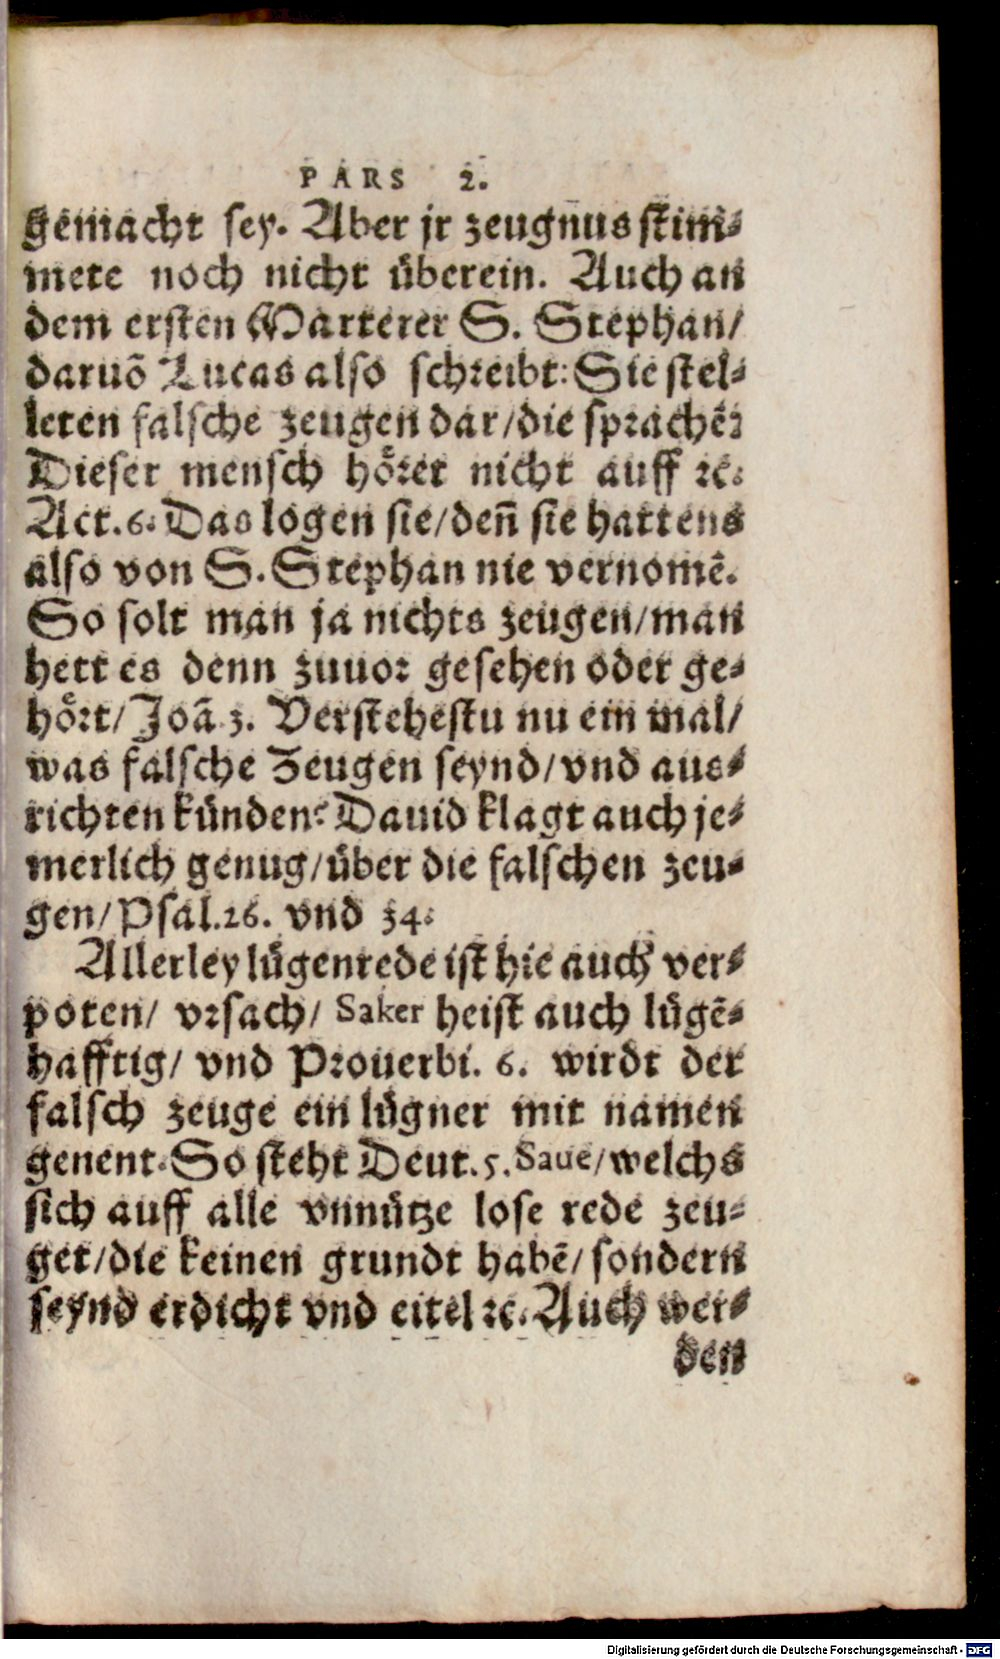 PARS 2.
gemacht sey. Aber jr zeugnus stim-
mete noch nicht überein. Auch an
dem ersten Marterer S. Stephan/
daruõ Lucas also schreibt: Sie stel-
leten falsche zeugen dar/die sprachẽ:
Dieser mensch höret nicht auff ꝛc.
Act. 6. Das logen sie/deñ sie hattens
also von S. Stephan nie vernomẽ.
So solt man ja nichts zeugen/man
hett es denn zuuor gesehen oder ge-
hört/ Joã 3. Verstehestu nu ein mal/
was falsche Zeugen seynd/vnd aus-
richten künden? Dauid klagt auch je-
merlich genug/über die falschen zeu-
gen/Psal.26. vnd 34.
Allerley lügenrede ist hie auch ver-
poten/ vrsach/ Saker heist auch lügẽ-
hafftig/ vnd Prouerbi. 6. wirdt der
falsch zeuge ein lügner mit namen
genent. So steht Deut. 5. Saue/welchs
sich auff alle vnnütze lose rede zeu-
get/die keinen grundt habẽ/sondern
seynd erdicht vnd eitel ꝛc. Auch wer-
den
Digitalisierung gefördert durch die Deutsche Forschungsgemeinschaft - DFG